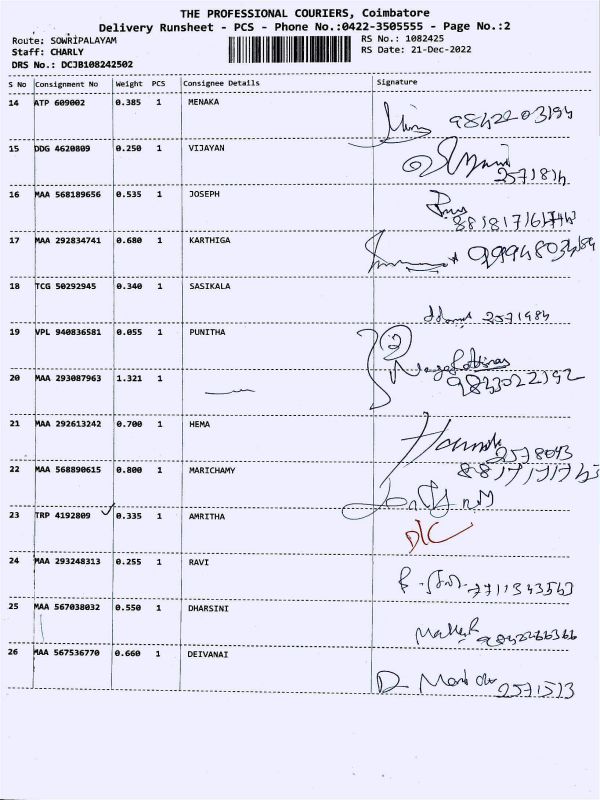 THE PROFESSIONAL COURIERS, Coimbatore
Delivery Runsheet - PCS - Phone No.:0422-3505555 - Page No.:2
Route: SOWRIPALAYAM RS No.: 1082425
Staff: CHARLY RS Date: 21-Dec-2022
DRS No.: DCJB108242502
S No Consignment No Weight PCS Consignee Details Signature
14 ATP 609002 0.385 1 MENAKA
15 DDG 4620809 0.250 1 VIJAYAN
2571814
16 MAA 568189656 0.535 1 JOSEPH
17 MAA 292834741 0.680 1 KARTHIGA
18 TCG 50292945 0.340 1 SASIKALA
2571984
19 VPL 940836581 0.055 1 PUNITHA
20 MAA 293087963 1.321 1
9843022192
21 MAA 292613242 0.700 1 HEMA
2578043
22 MAA 568890615 0.800 1 MARICHAMY
23 TRP 4192809 0.335 1 AMRITHA
D/C
24 MAA 293248313 0.255 1 RAVI
25 MAA 567038032 0.550 1 DHARSINI
26 MAA 567536770 0.660 1 DEIVANAI
2571513